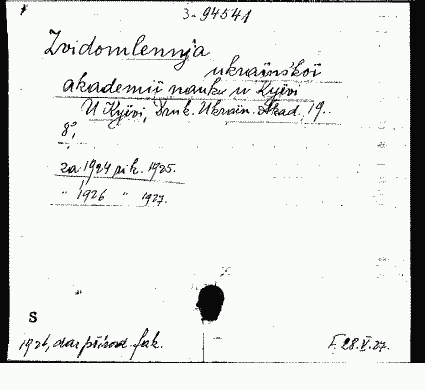 3-94541
Zvidomlennja
ukraïnśkoï
akademiï nauk u Kyïvi
U Kyïvi, Druk. Ukraïn. Akad., 19..
8°,
za 1924 rik. 1925.
" 1926 " 1927.
S
1926, dar přírod. fak.
F. 28.V.27.